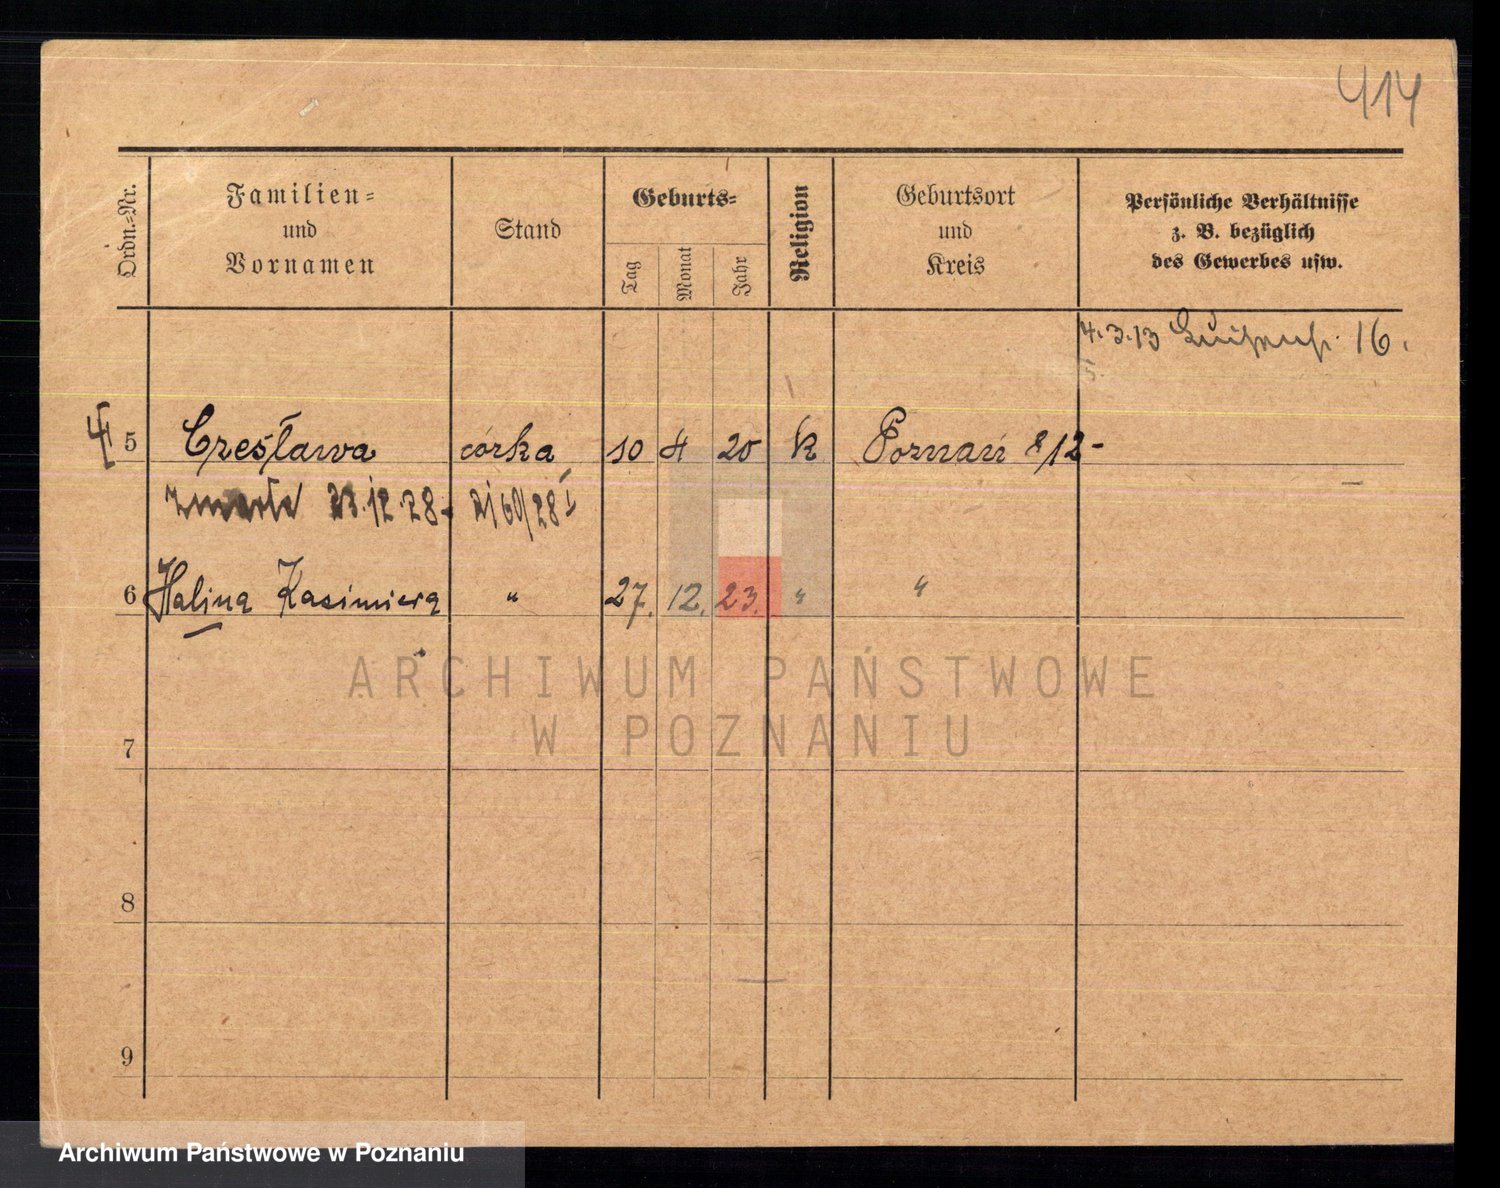 414
Ordn.-Nr.
Familien-
und
Vornamen
Stand
Geburts-
Tag
Monat
Jahr
Religion
Geburtsort
und
Kreis
Persönliche Verhältnisse
z. B. bezüglich
des Gewerbes usw.
4.3.13 16.
5 Czesława córka 10 4 20 k Poznań
zmarła 23.12.28
6 Halina Kasimiera " 27. 12. 23. " "
ARCHIWUM PAŃSTWOWE
W POZNANIU
7
8
9
Archiwum Państwowe w Poznaniu